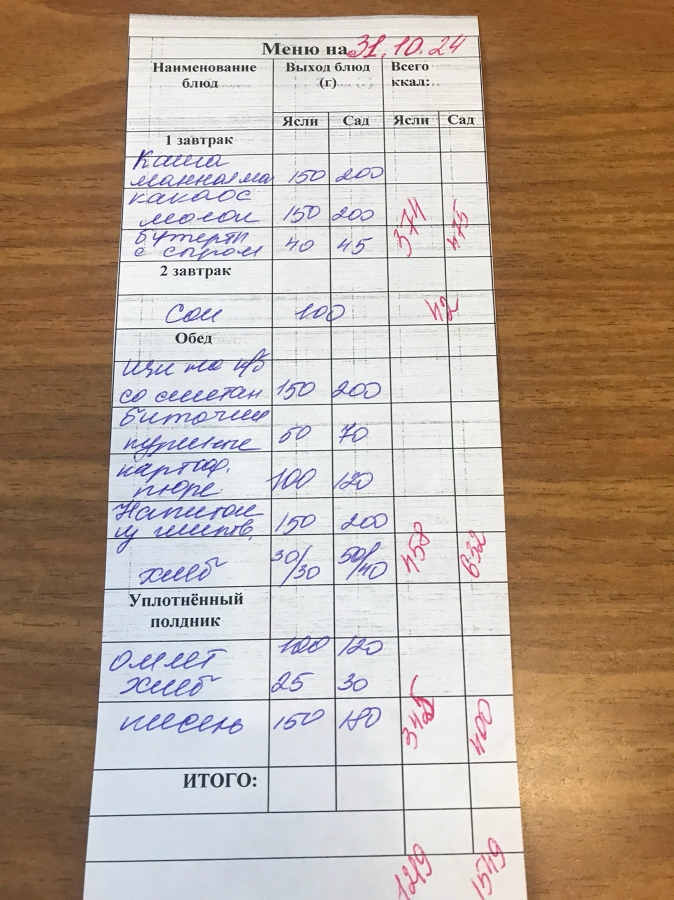 Меню на 31.10.24
Наименование блюд Выход блюд (г) Всего ккал:
Ясли Сад Ясли Сад
1 завтрак
Каша
манная 150 200
какао с
молок 150 200 374 475
бутерб
с сыром 40 45
2 завтрак
Сок 100 42
Обед
щи на к/б
со сметан 150 200
биточки
куриные 50 70
картоф.
пюре 100 120
Напиток
из 150 200
хлеб 30/30 50/40 458 632
Уплотнённый
полдник
омлет 100 120
хлеб 25 30
кисель 150 180 345 400
ИТОГО:
1219 1549